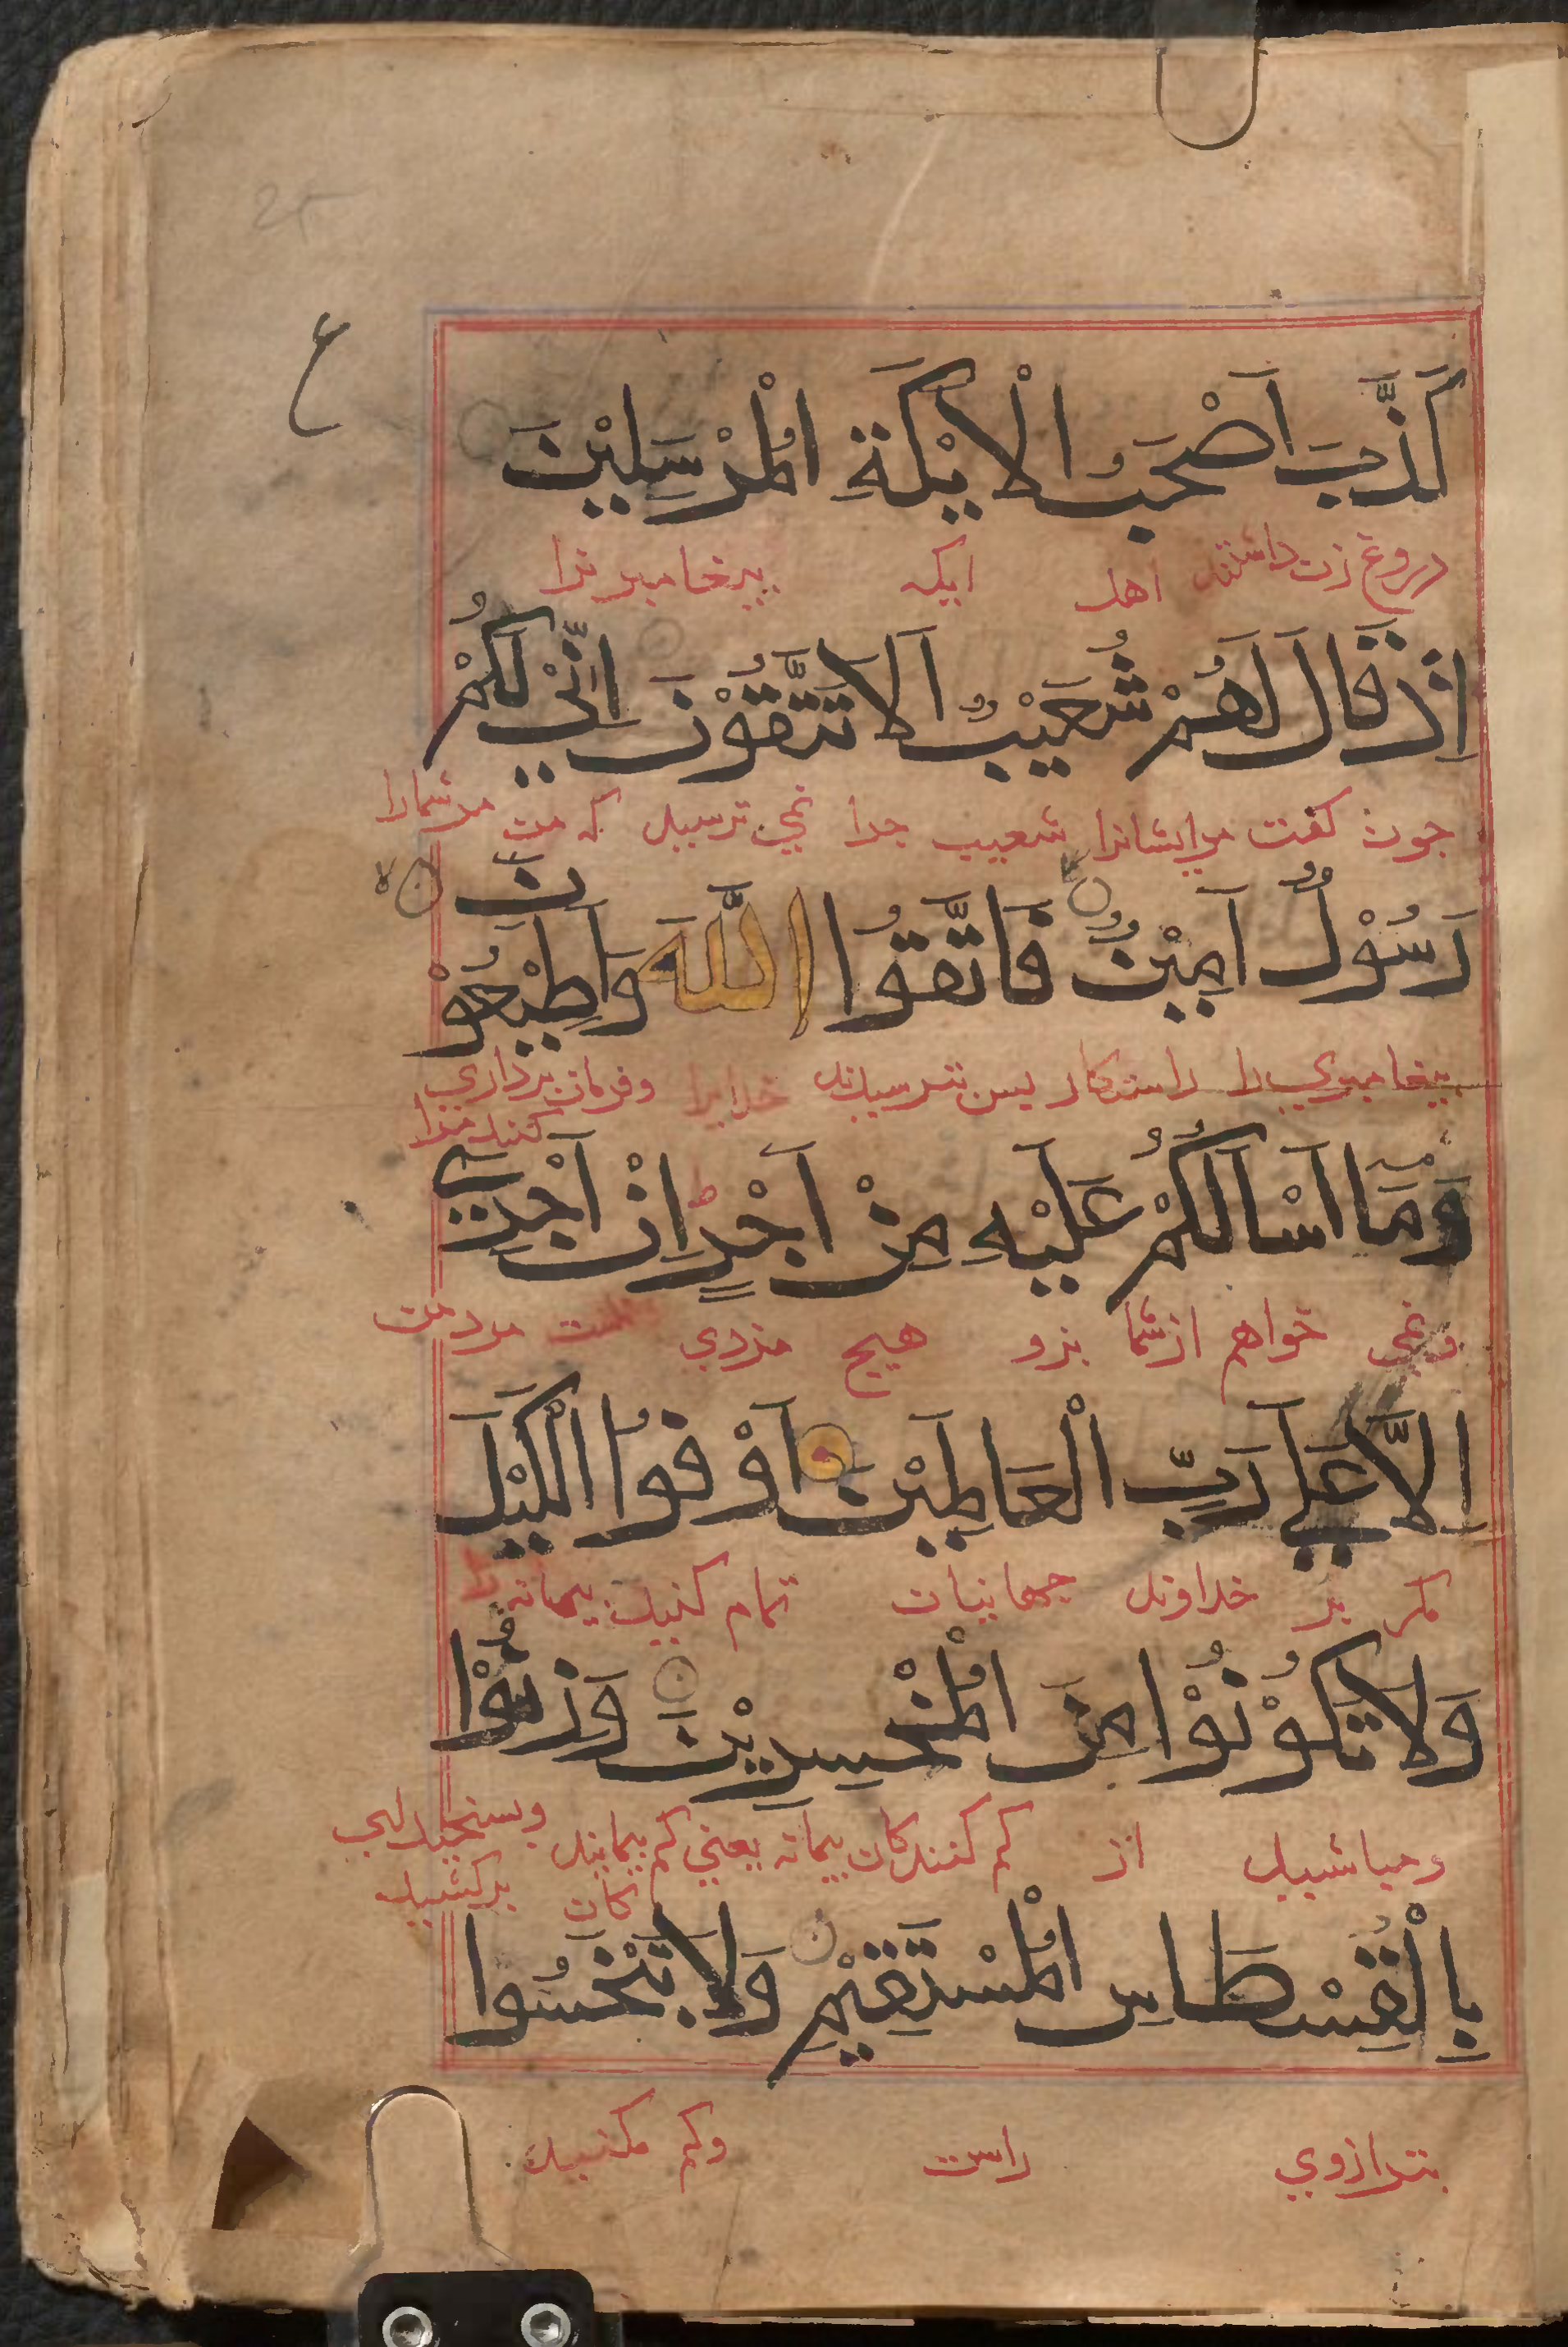 ع
كَذَّبَ اَصْحٰبُ الْاَيْكَةِ الْمُرْسَلِيْنَ
دروغ زن داشتند اهل ايكه پيغامبرانرا
اِذْ قَالَ لَهُمْ شُعَيْبٌ اَلَا تَتَّقُوْنَ اِنِّيْ لَكُمْ
جون كفت مرايشانرا شعيب جرا نمى ترسيد كه من مرشمارا
رَسُوْلٌ اَمِيْنٌ فَاتَّقُوا اللَّهَ وَاَطِيْعُوْنَ
پيغامبري را راستكار پس بترسيد خدايرا وفرمان برداري
كنيد مرا
وَمَا اَسْاَلُكُمْ عَلَيْهِ مِنْ اَجْرٍ اِنْ اَجْرِيَ
ونمى خواهم ازشما برو هيچ مزدي نيست مزد من
اِلَّا عَلَى رَبِّ الْعَالَمِيْنَ اَوْفُوا الْكَيْلَ
مكر بر خداوند جهانيان تمام كنيد پيمانه را
وَلَا تَكُوْنُوْا مِنَ الْمُخْسِرِيْنَ وَزِنُوْا
ومباشيد از كم كنندكان پيمانه يعني كم پيمايند وبسنجيد
كان بركشيد
بِالْقِسْطَاسِ الْمُسْتَقِيْمِ وَلَا تَبْخَسُوا
بترازوي راست وكم مكنيد